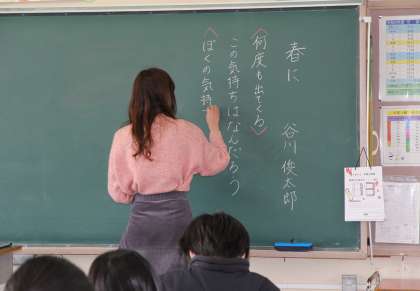 春に
谷川俊太郎
〈何度も出てくる〉
この気持ちはなんだろう
〈ぼくの気持